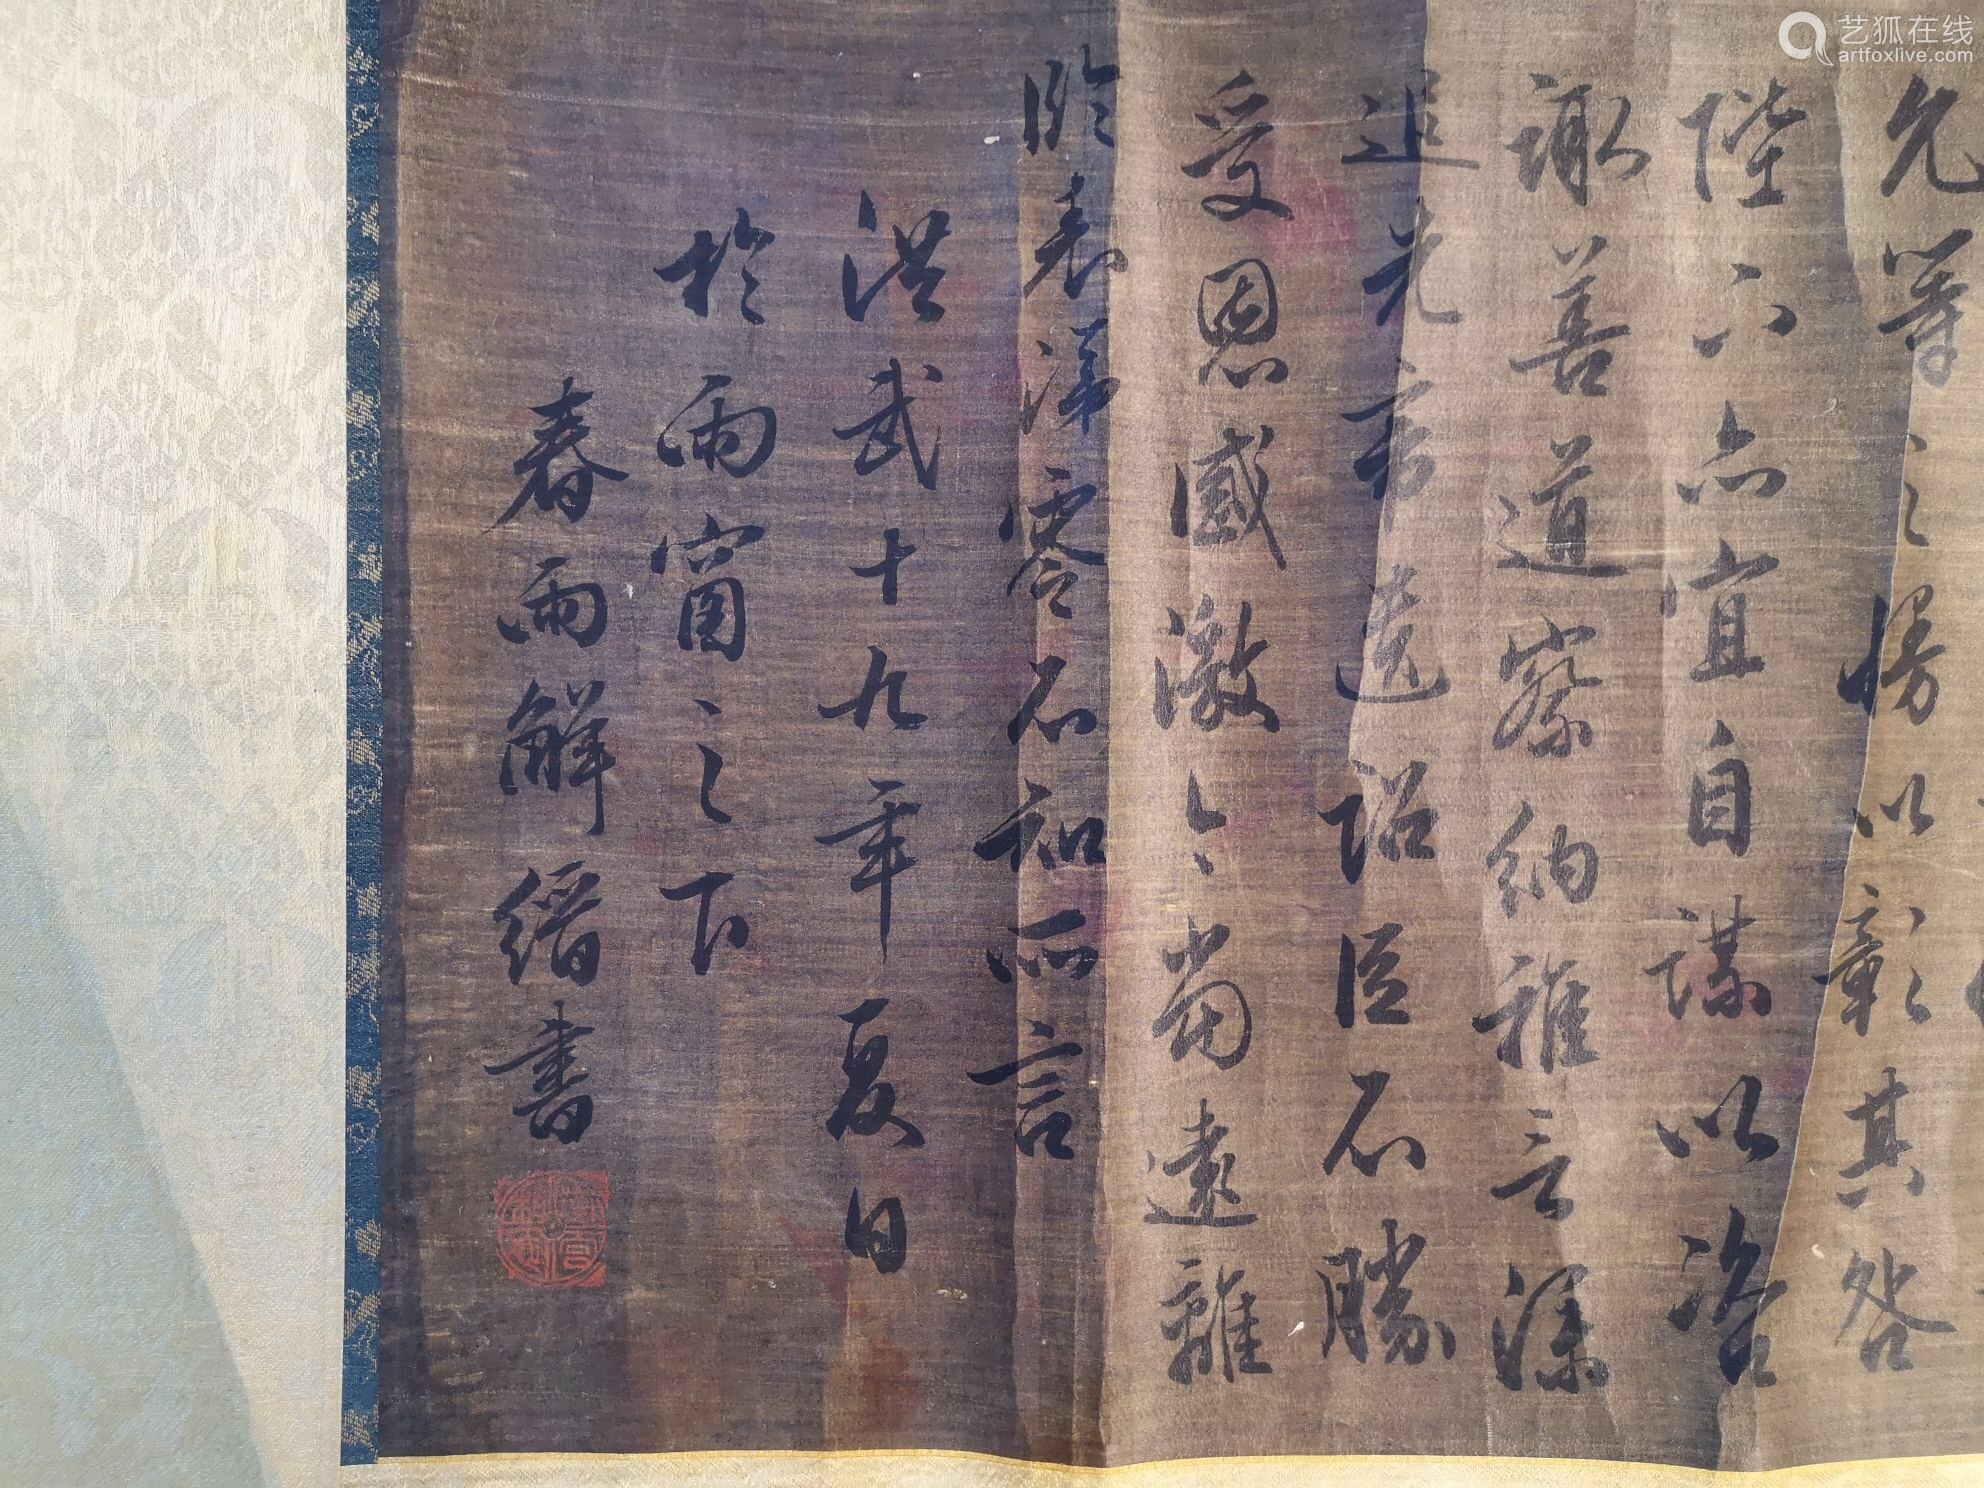 允等之慢以彰其咎
陛下亦宜自謀以咨
諏善道察納雅言深
追先帝遺詔臣不勝
受恩感激今當遠離
臨表涕零不知所言
洪武十九年夏日
於雨窗之下
春雨解縉書
艺狐在线
artfoxlive.com